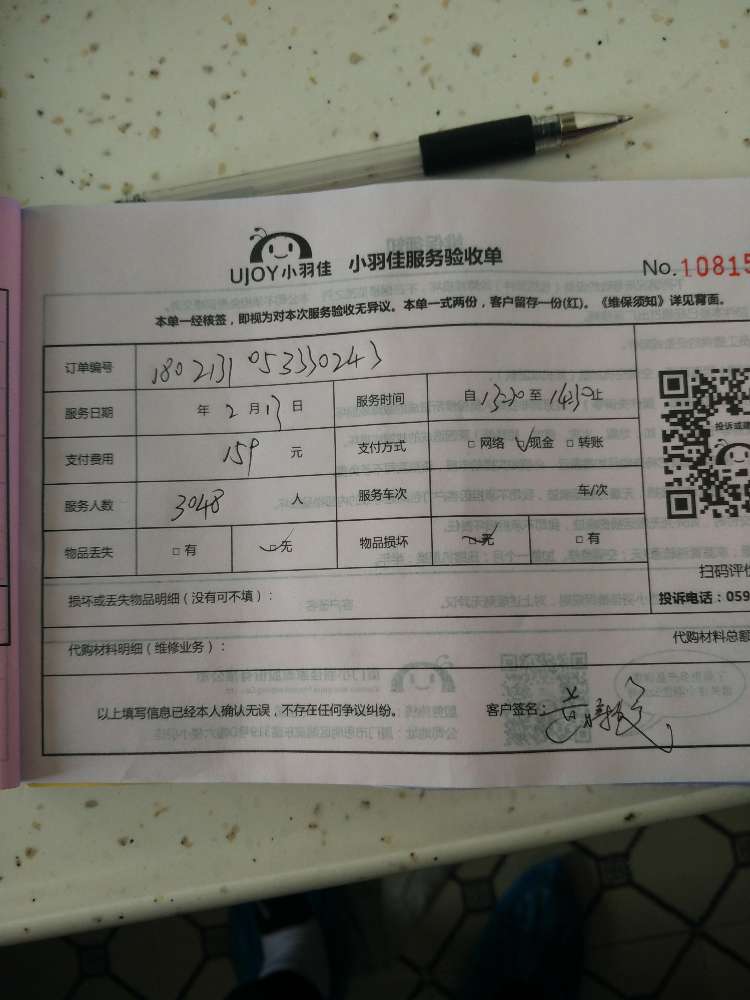 UJOY小羽佳 小羽佳服务验收单
No.10815
本单一经核签，即视为对本次服务验收无异议。本单一式两份，客户留存一份(红)。《维保须知》详见背面。
订单编号 180213105330243
服务日期 年 2 月 13 日 服务时间 自 1320 至 1430 止
支付费用 159 元 支付方式 □ 网络 □ 现金 □ 转账
投诉或建
服务人数 3048 人 服务车次 车/次
物品丢失 □ 有 □ 无 物品损坏 □ 无 □ 有
扫码评价
损坏或丢失物品明细（没有可不填）：
投诉电话：059
代购材料明细（维修业务）：
代购材料总额
以上填写信息已经本人确认无误，不存在任何争议纠纷。 客户签名：